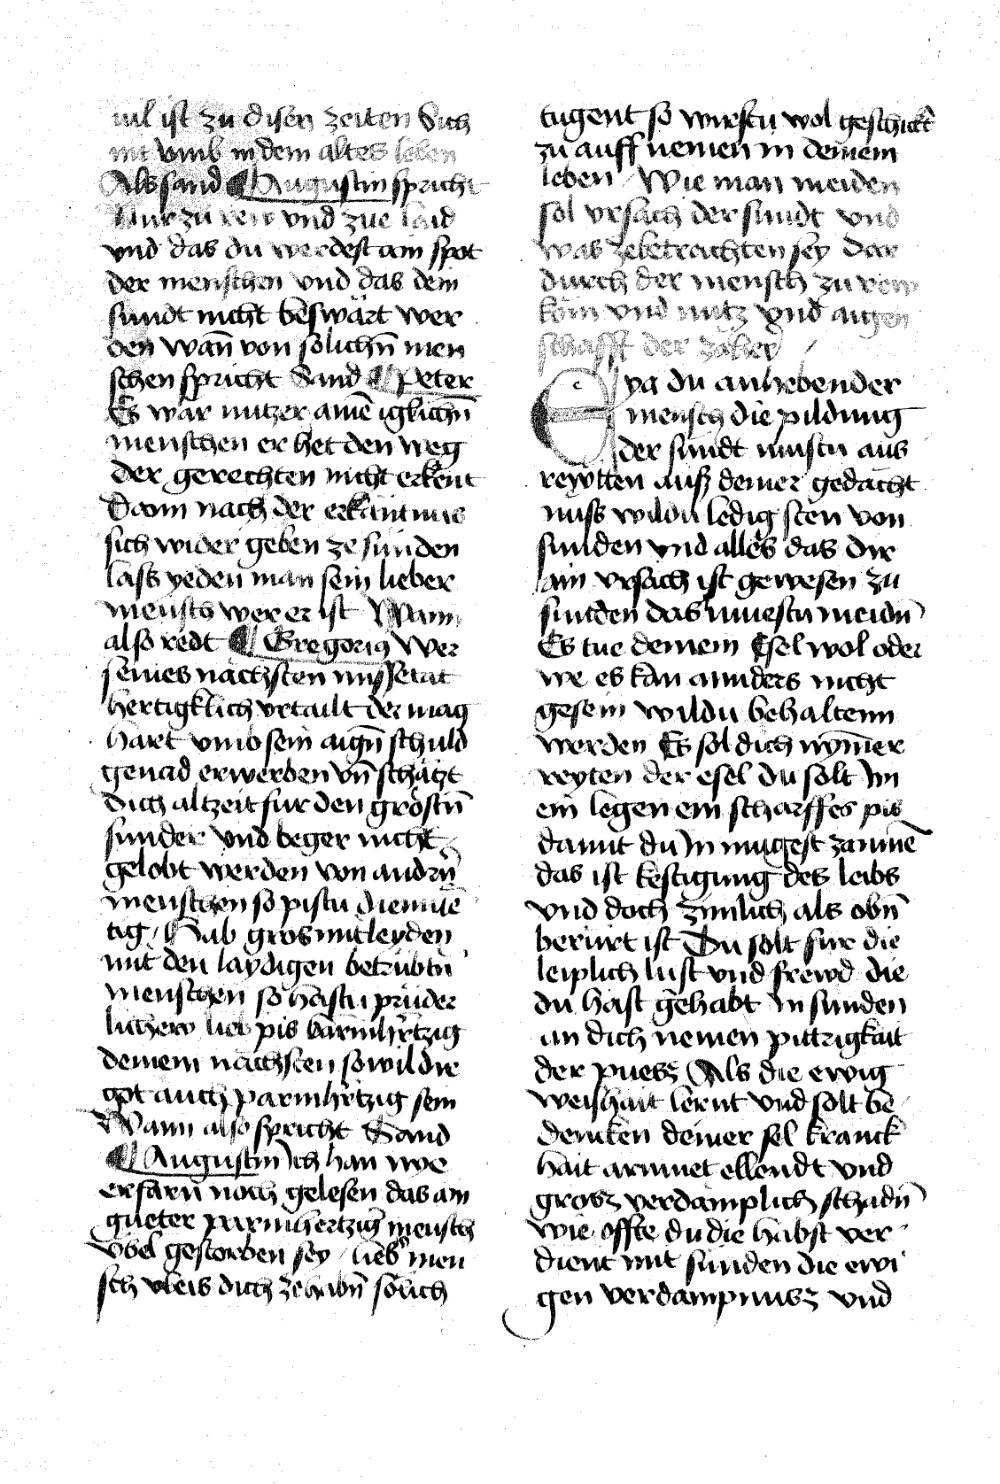 uil ist zu disen zeiten Sich
nit vmb in dem altes leben
Als sand Augustin spricht
Nur zu rew vnd zue laid
vnd das du werdest am spot
der menschen vnd das dein
sundt nicht beswärt wer
den wan̄ von solichn̄ men
schen spricht Sand Peter
Es wär nutzer aine͞ iglichn̄
menschen er het den weg
der gerechten nicht erkent
Dann nach der erkantnus
sich wider geben ze sunden
lass yeden man sein lieber
mensch wer er ist Wann
also redt Gregorius Wer
seines nächsten missetat
hertigklich vrtailt der mag
hart vmb sein aign̄ schuld
genad erwerben vn̄ schätzt
dich altzeit fur den gröstn̄
sunder vnd beger nicht
gelobt werden von andrn̄
menschen so pistu diemue͞
tig / Hab gros mitleyden
mit den laydigen betrübtn̄
menschen so hastu prüder
lichew lieb pis barmhr̄tzig
deinem nächsten so wil dir
got auch parmhr̄tzig sein
Wann also spricht Sand
Augustin Ich han nye
erfarn noch gelesen das ain
gueter parmhertzig mensch
vbel gestorben sey / lieb͛ men
sch vleis dich ze habn̄ sölich
tugent so wirstu wol geschickt
zu auff nemen in deinem
leben / Wie man meiden
sol vrsach der sundt vnd
was zebetrachten sey dar
durch der mensch zu rew
kom vnd nutz vnd aigen
schafft der zäher /
Eya du anhebender
mensch die pildung
der sundt mustu aus
reyotten aus deiner gedächt
nuss wildu ledig sten von
sunden vnd alles das dir
ain vrsach ist gewesen zu
sunden das muestu meidn̄
Es tue deinem Esel wol oder
we es kan annders nicht
gesein wildu behaltenn
werden Es sol dich nyn̄er
reyten der esel du solt Im
ein legen ein scharffes pis
damit du In mugest zamme͞
das ist kestigung des leibs
vnd doch zimlich als obn̄
berürt ist Du solt fur die
leiplich lust vnd frewd die
du hast gehabt in sunden
an dich nemen pittrigkait
der puesz Als die ewig
weishait lernt vnd solt be
dencken deiner sel kranck
hait armuet ellendt vnd
grosz verdamplich schadn̄
wie offte du die habst ver
dient mit sunden die ewi
gen verdampnusz vnd